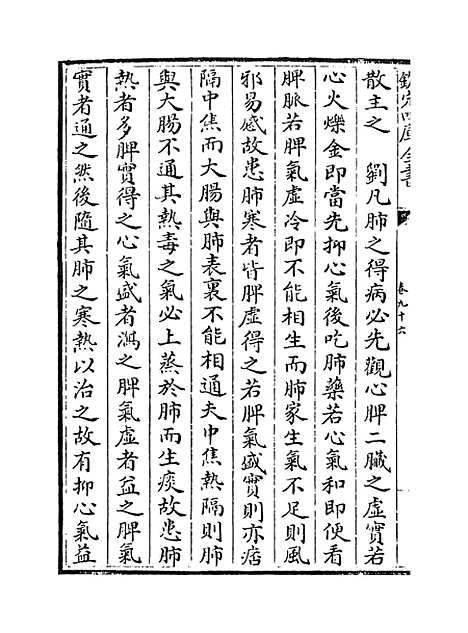 欽定四庫全書
卷九十六
散主之　劉凡肺之得病必先觀心脾二臟之虛實若
心火爍金即當先抑心氣後吃肺藥若心氣和即便看
脾脈若脾氣虛冷即不能相生而肺家生氣不足則風
邪易感故患肺寒者皆脾虛得之若脾氣盛實則亦痞
隔中焦而大腸與肺表裏不能相通夫中焦熱隔則肺
與大腸不通其熱毒之氣必上蒸於肺而生痰故患肺
熱者多脾實得之心氣盛者瀉之脾氣虛者益之脾氣
實者通之然後隨其肺之寒熱以治之故有抑心氣益